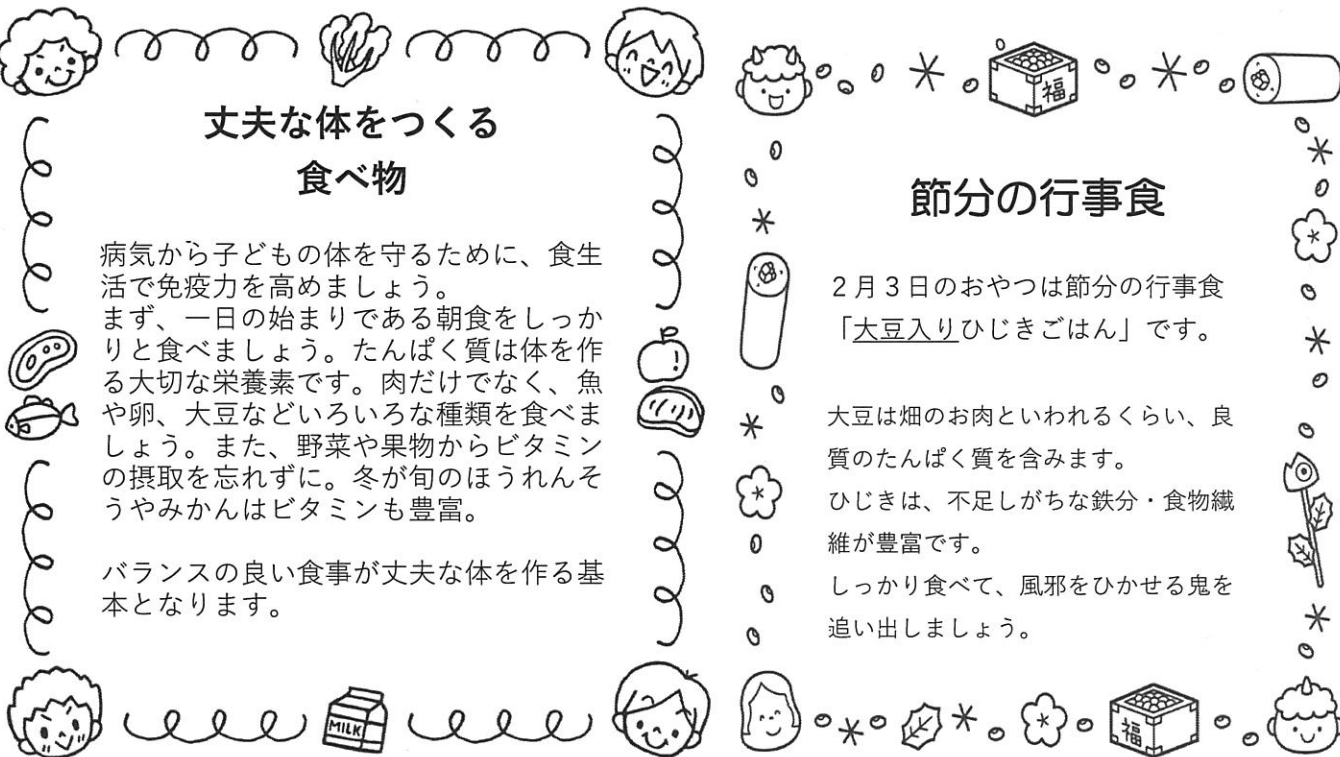 丈夫な体をつくる
食べ物
病気から子どもの体を守るために、食生
活で免疫力を高めましょう。
まず、一日の始まりである朝食をしっか
りと食べましょう。たんぱく質は体を作
る大切な栄養素です。肉だけでなく、魚
や卵、大豆などいろいろな種類を食べま
しょう。また、野菜や果物からビタミン
の摂取を忘れずに。冬が旬のほうれんそ
うやみかんはビタミンも豊富。
バランスの良い食事が丈夫な体を作る基
本となります。
MILK
福
節分の行事食
2月3日のおやつは節分の行事食
「大豆入りひじきごはん」です。
大豆は畑のお肉といわれるくらい、良
質のたんぱく質を含みます。
ひじきは、不足しがちな鉄分・食物繊
維が豊富です。
しっかり食べて、風邪をひかせる鬼を
追い出しましょう。
福